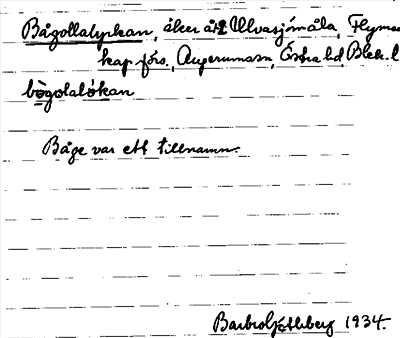 Bågollalyckan, åker åt Ulvasjömåla, Flyme-
kap.förs., Augerumssn, Östra hd, Blek. l
bògolalókan
Båge var ett tillnamn.
Barbro Götheberg 1934.